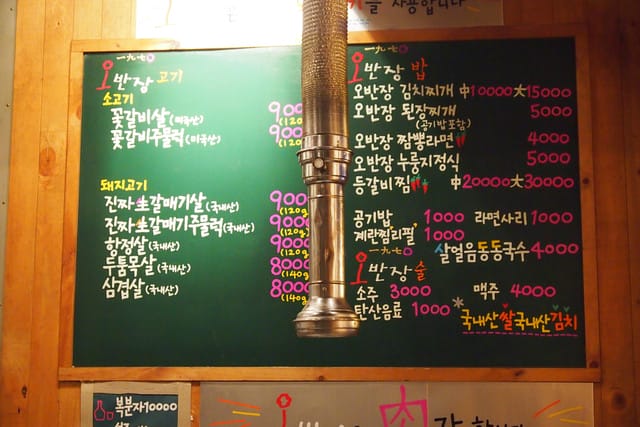 를 사용합니다
一九七0
오반장고기
소고기
꽃갈비살(미국산) 900
꽃갈비주물럭(미국산) 900
돼지고기
진짜生갈매기살(국내산) 900 (120g
진짜生갈매기주물럭(국내산) 900 (120g
항정살(국내산) 900 (120g
우툼목살(국내산) 800 (140g
삼겹살(국내산) 800 (140g
一九七0
오반장 밥
오반장 김치찌개 中10000大15000
오반장 된장찌개 5000
(공기밥포함)
오반장 짬뽕라면 4000
오반장 누룽지정식 5000
등갈비찜 中20000大30000
공기밥 1000 라면사리 1000
계란찜리필 1000
살얼음동동국수 4000
一九七0
오반장술
소주 3000 맥주 4000
탄산음료 1000
*국내산쌀국내산김치
복분자10000